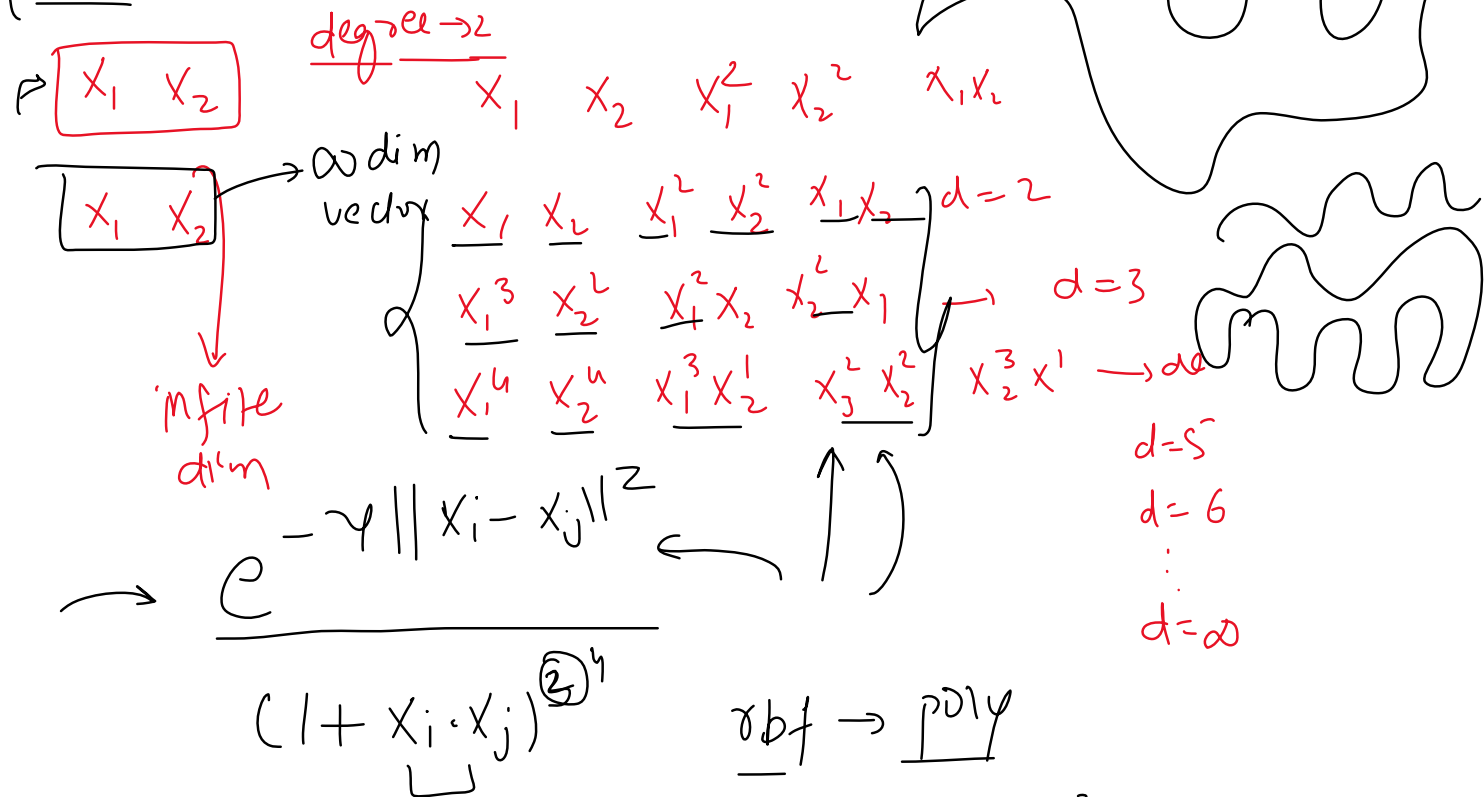 degree → 2
X₁ X₂
X₁ X₂ X₁² X₂² X₁X₂
∞ dim
vector
X₁ X₂
X₁ X₂ X₁² X₂² X₁X₂ d = 2
X₁³ X₂² X₁²X₂ X₂²X₁ → d = 3
X₁⁴ X₂⁴ X₁³X₂¹ X₃²X₂² X₂³X¹ → de
infite
dim
d=5
d=6
⋮
d=∞
e^(-γ||Xi - Xj||²)
(1 + Xi·Xj)^② ⁴
rbf → poly